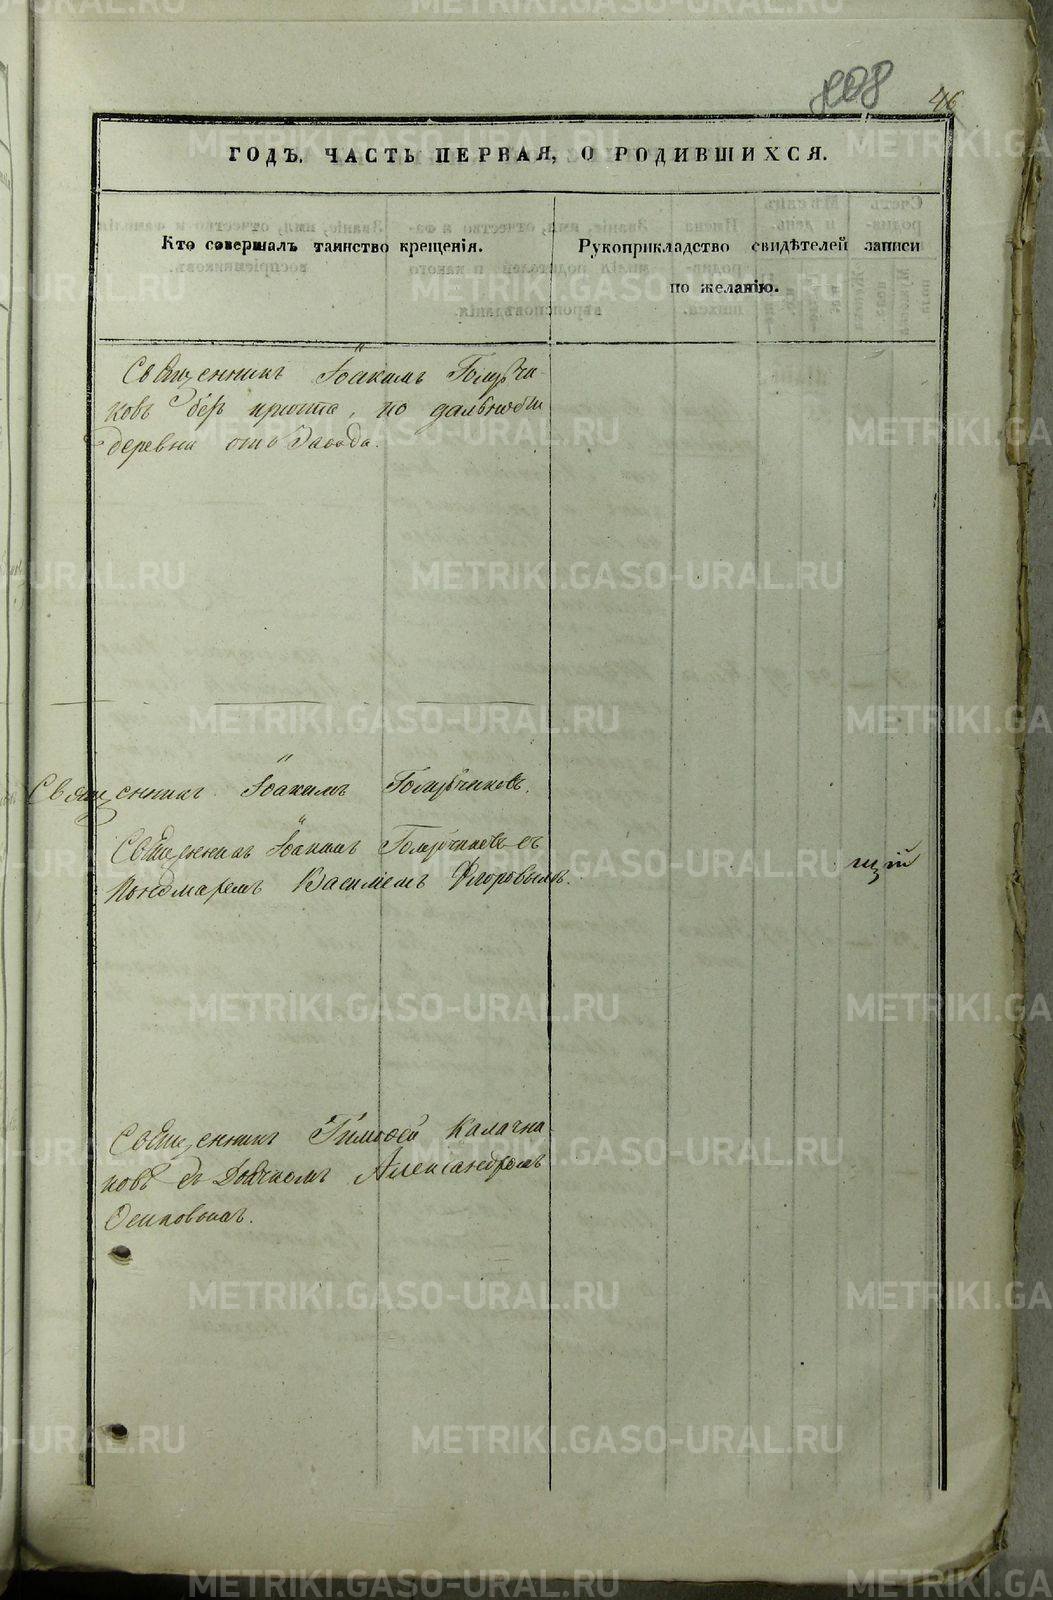 108
46
ГОДЪ. ЧАСТЬ ПЕРВАЯ, О РОДИВШИХСЯ.
Кто совершалъ таинство крещенія.
Рукоприкладство свидѣтелей записи
по желанію.
Священникъ Іоакимъ Голубчи-
ковъ безъ причта, по дальности
деревни отъ Завода.
Священникъ Іоакимъ Голубчиковъ.
Священникъ Іоакимъ Голубчиковъ съ
Пономаремъ Василіемъ Флоровымъ.
щій
Священникъ Тимофей Калачни
ковъ съ Дьячкомъ Александромъ
Осиповымъ.
METRIKI.GASO-URAL.RU